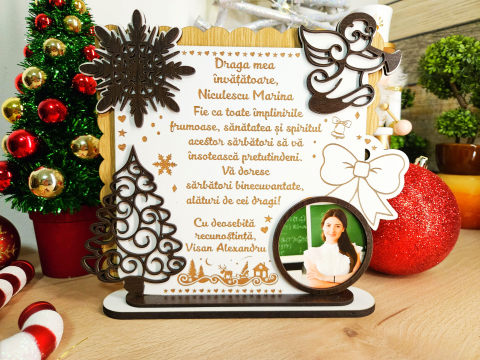 Draga mea
învățătoare,
Niculescu Marina
Fie ca toate împlinirile
frumoase, sănătatea și spiritul
acestor sărbători să vă
însoțească pretutindeni.
Vă doresc
sărbători binecuvantate,
alături de cei dragi!
Cu deosebită
recunoștință,
Visan Alexandru